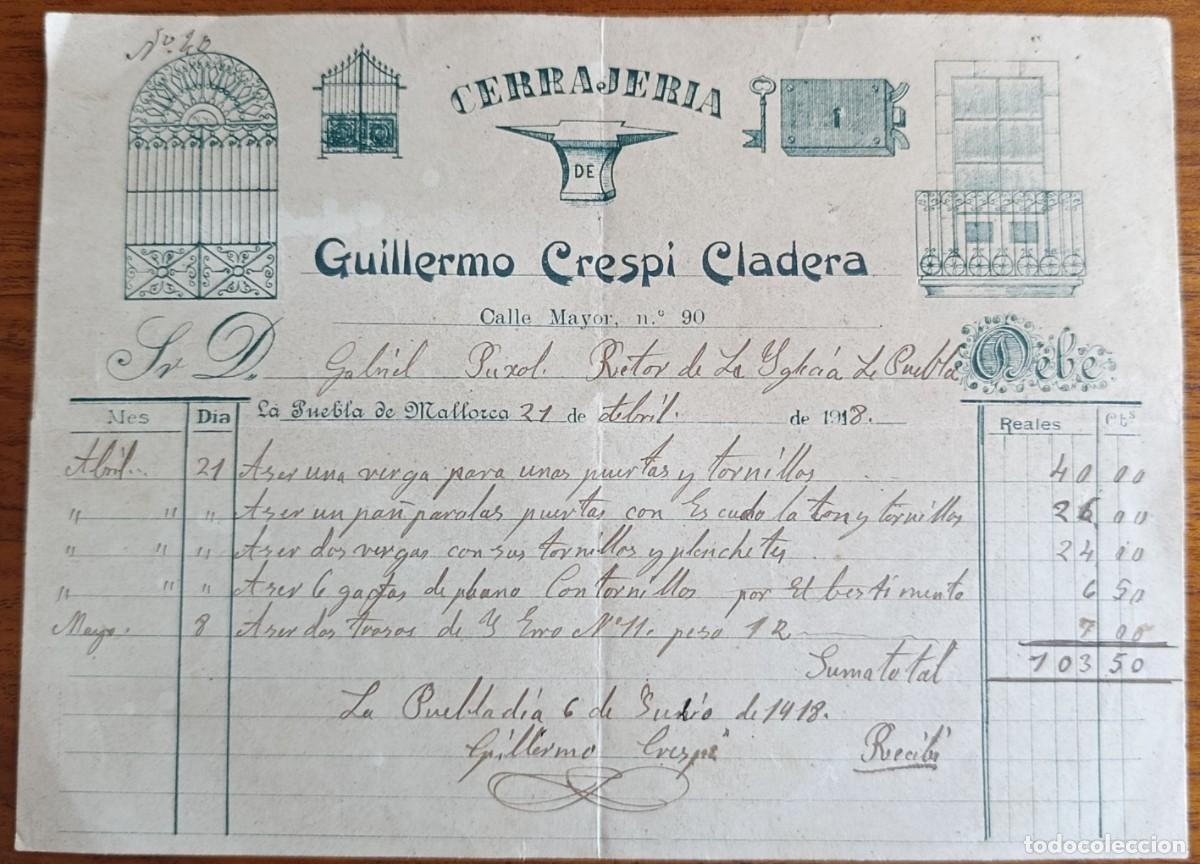 Nº 20
CERRAJERIA
DE
Guillermo Crespi Cladera
Calle Mayor, n.º 90
Sr D. Gabriel Puxol. Retor de La Yglecia Le Puebla Debe
Mes Dia La Puebla de Mallorca 21 de Abril. de 1918. Reales Cts
Abril. 21 Aser una verga para unas puertas y tornillos 40 00
" " " Aser un pañ paralas puertas con Escudo laton y tornillos 26 00
" " " Aser dos vergas con sus tornillos y planchetes 24 00
" " " Aser 6 de Con tornillos por El bestimento 6 50
Mayo. 8 Aser dos trosos de Y Erro Nº 11. peso 12 7 00
Suma total 103 50
La Puebla dia 6 de Junio de 1918.
Guillermo Crespi Recibi
todocoleccion